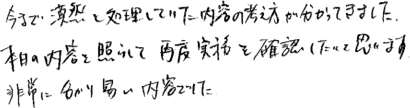 今まで漠然と処理していた内容の考え方が分かってきました.
本日の内容と照らして再度実務を確認したいと思います
非常に分かり易い内容でした